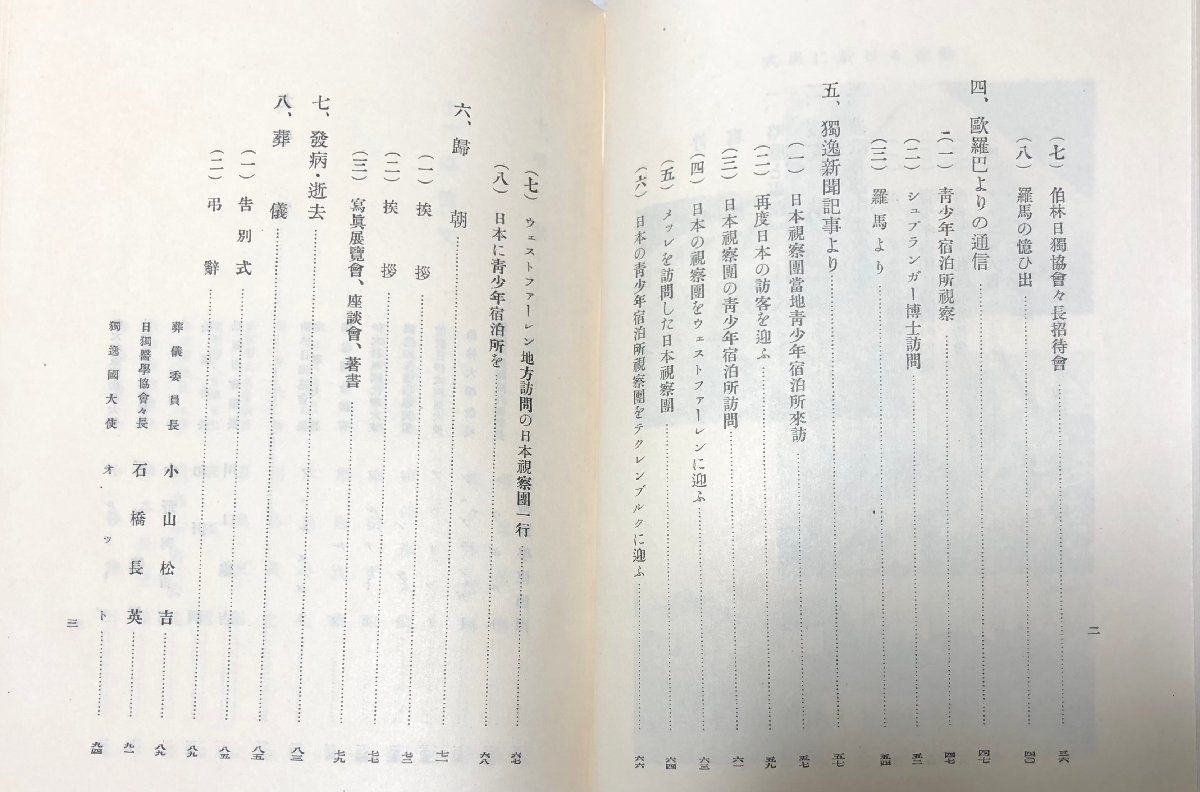 (七) 伯林日獨協會々長招待會……三六
(八) 羅馬の憶ひ出……四〇
四、歐羅巴よりの通信……四七
(一) 靑少年宿泊所視察……四七
(二) シュプランガー博士訪問……五二
(三) 羅馬より……五四
五、獨逸新聞記事より……五七
(一) 日本視察團當地靑少年宿泊所來訪……五七
(二) 再度日本の訪客を迎ふ……五九
(三) 日本視察團の靑少年宿泊所訪問……六一
(四) 日本の視察團をウェストファーレンに迎ふ……六三
(五) メッレを訪問した日本視察團……六四
(六) 日本の靑少年宿泊所視察團をテクレンブルクに迎ふ……六六
二
(七) ウェストファーレン地方訪問の日本視察團一行……六七
(八) 日本に靑少年宿泊所を……六八
六、歸朝……七一
(一) 挨拶……七二
(二) 挨拶……七七
(三) 寫眞展覽會、座談會、著書……七九
七、發病・逝去……八三
八、葬儀……八五
(一) 告別式……八五
(二) 弔辭……八九
葬儀委員長 小山松吉……八九
日獨醫學協會々長 石橋長英……九一
獨逸國大使 オット……九四
三